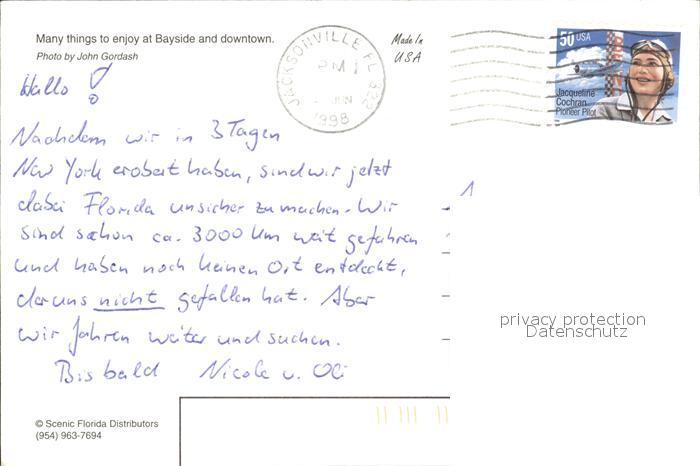 Many things to enjoy at Bayside and downtown.
Photo by John Gordash
Made In
USA
JACKSONVILLE FL 322
PM
JUN
1998
50 USA
Jacqueline
Cochran
Pioneer Pilot
Hallo!
Nachdem wir in 3 Tagen
New York erobert haben, sind wir jetzt
dabei Florida unsicher zu machen. Wir
sind schon ca. 3000 km weit gefahren
und haben noch keinen Ort entdeckt,
der uns nicht gefallen hat. Aber
wir fahren weiter und suchen.
Bis bald Nicole u. Oli
privacy protection
Datenschutz
© Scenic Florida Distributors
(954) 963-7694